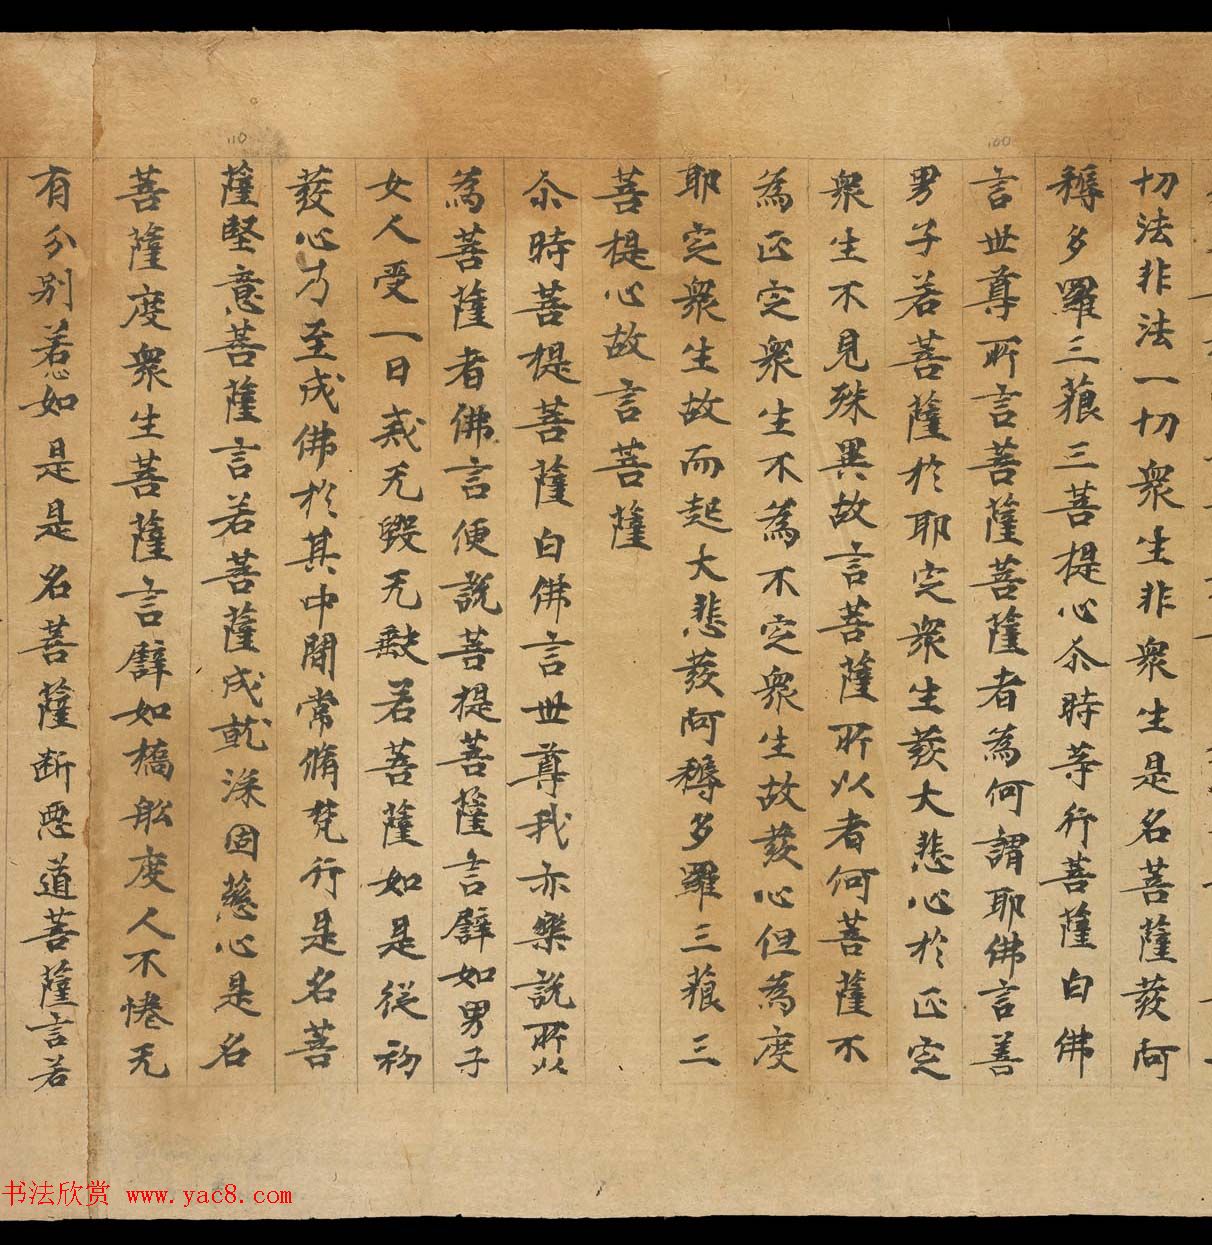 切法非法一切衆生非衆生是名菩薩發阿
耨多羅三藐三菩提心尒時等行菩薩白佛
言世尊所言菩薩菩薩者為何謂耶佛言善
男子若菩薩於耶定衆生發大悲心於正定
衆生不見殊異故言菩薩所以者何菩薩不
為正定衆生不為不定衆生故發心但為度
耶定衆生故而起大悲發阿耨多羅三藐三
菩提心故言菩薩
尒時菩提菩薩白佛言世尊我亦樂說所以
為菩薩者佛言便說菩提菩薩言譬如男子
女人受一日戒无毀无缺若菩薩如是從初
發心乃至成佛於其中間常脩梵行是名菩
薩堅意菩薩言若菩薩成就深固慈心是名
菩薩度衆生菩薩言譬如橋舩度人不惓无
有分別若心如是是名菩薩斷惡道菩薩言若
110
100
书法欣赏 www.yac8.com